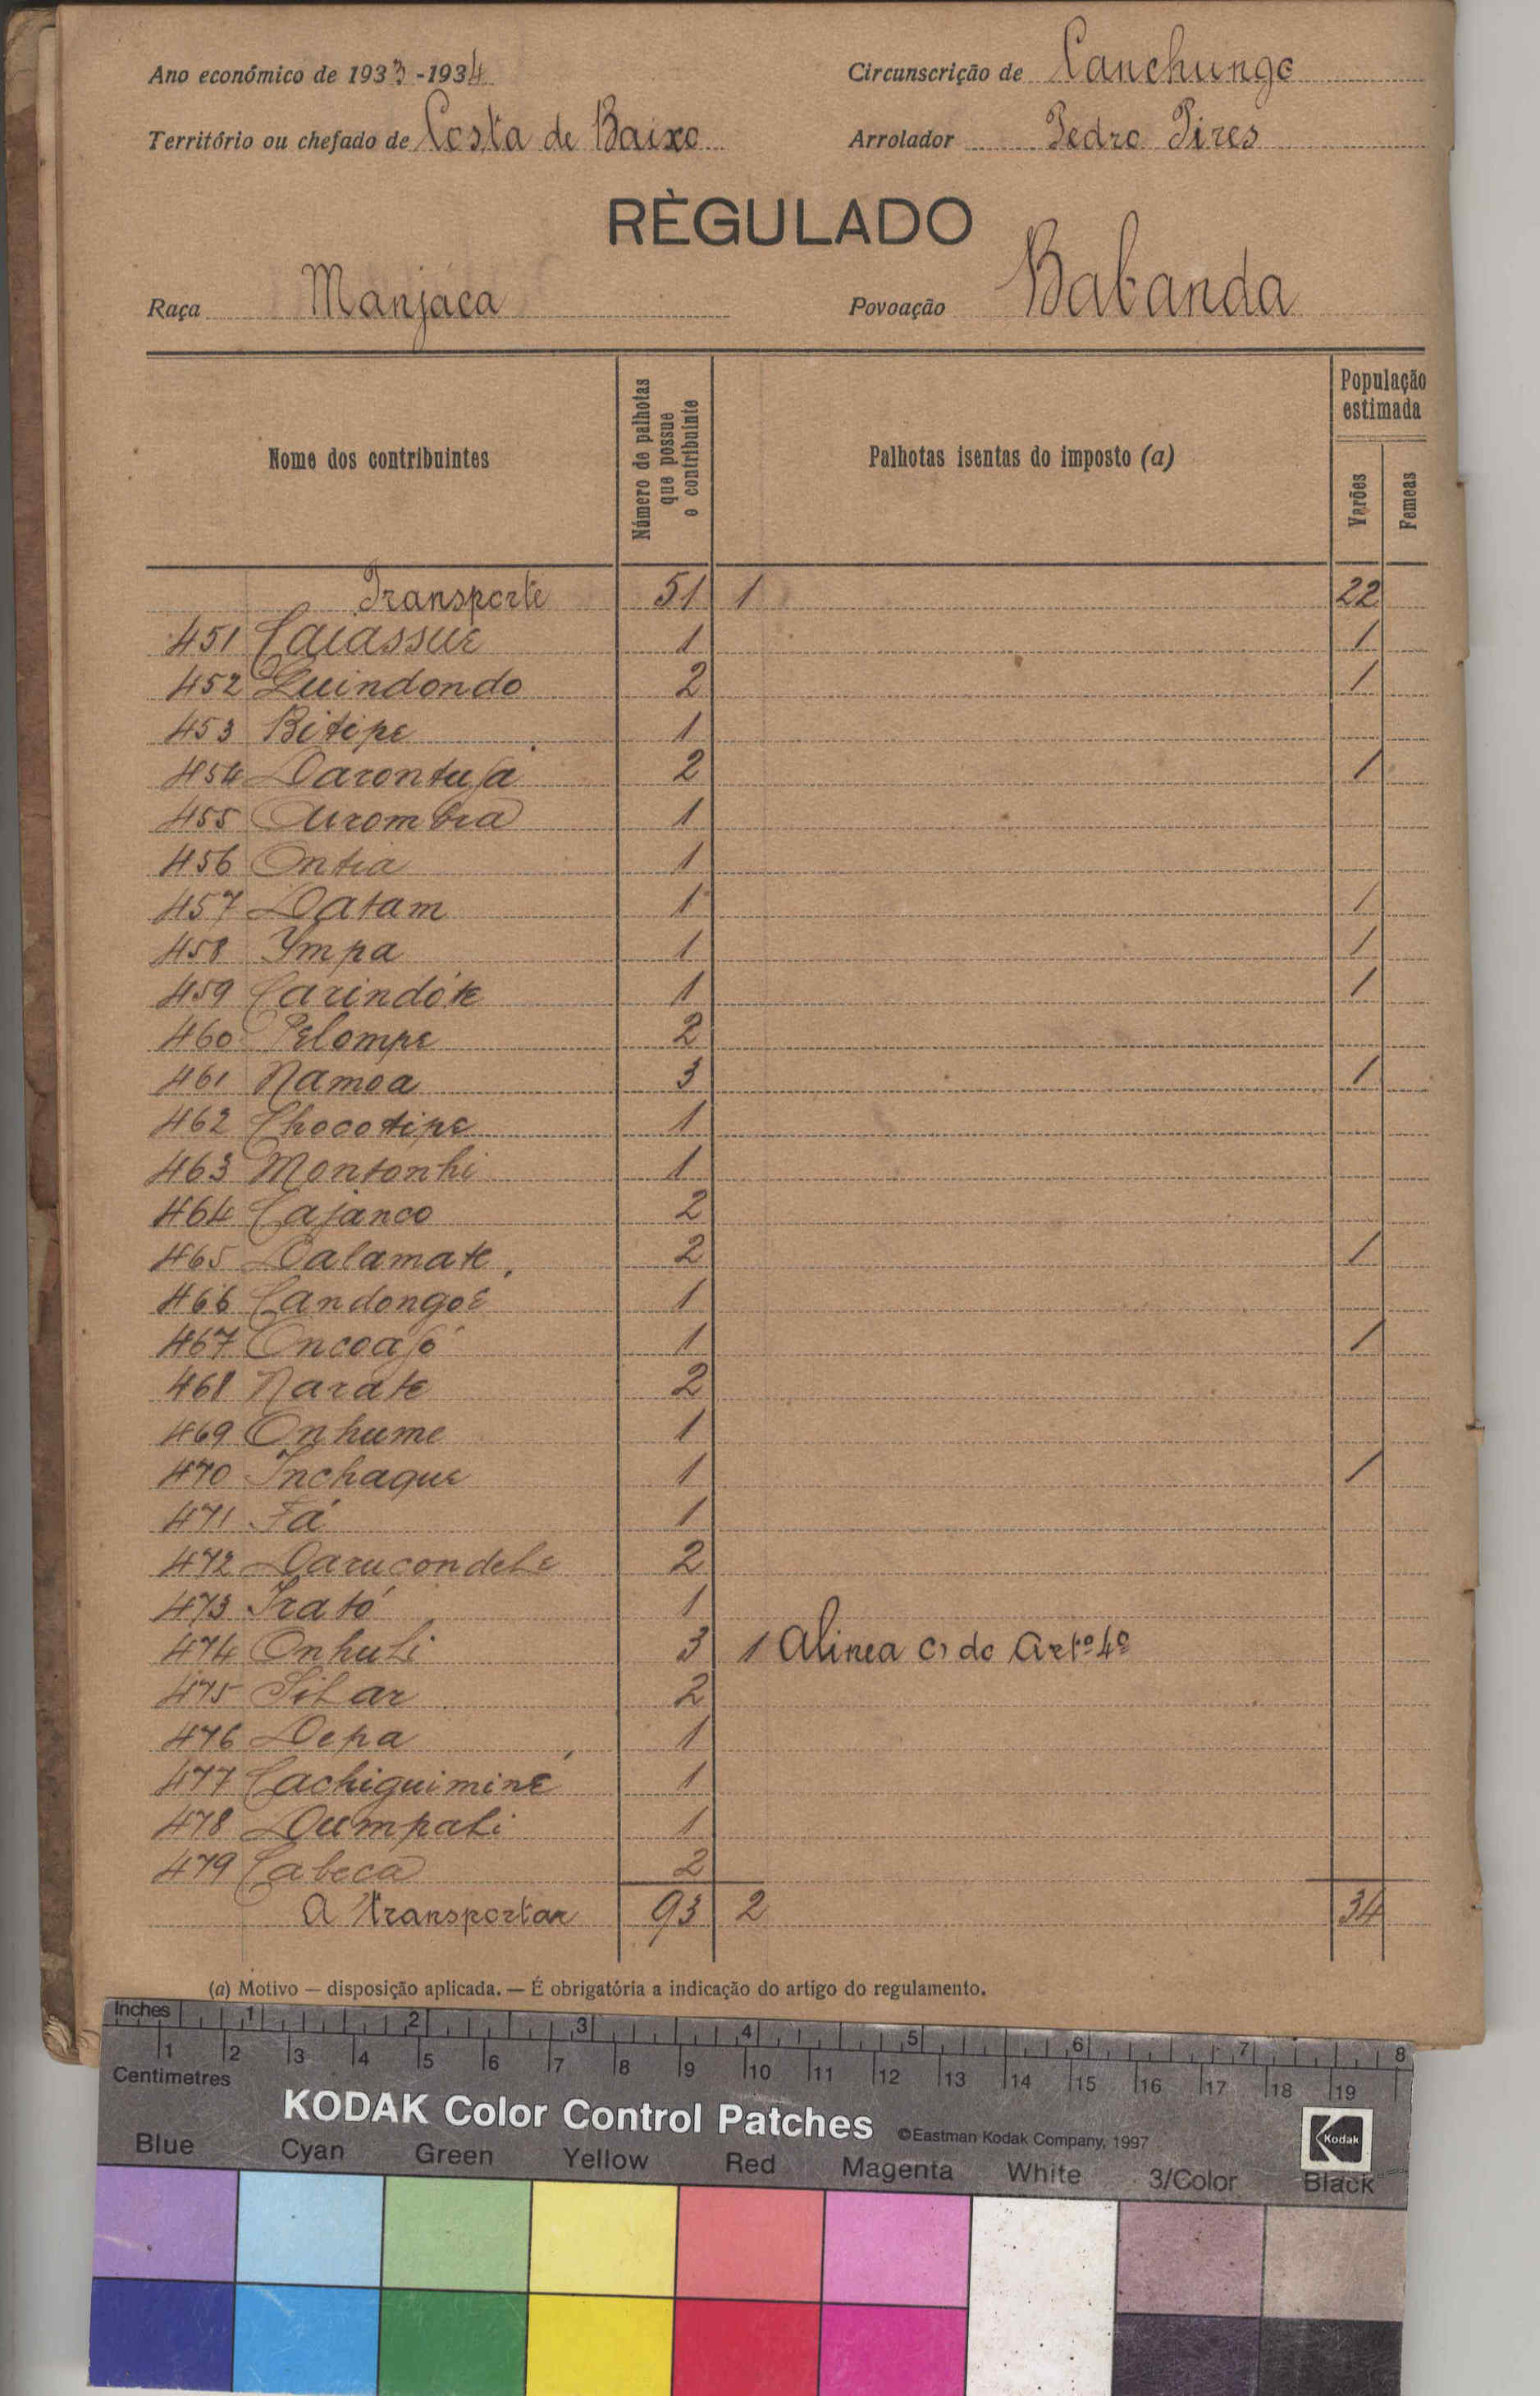 Ano económico de 1933-1934 Circunscrição de Canchungo
Território ou chefado de Costa de Baixo Arrolador Pedro Pires
RÈGULADO
Raça Manjaca Povoação Babanda
Nome dos contribuintes Número de palhotas que possue o contribuinte Palhotas isentas do imposto (a) População estimada Varões Femeas
Transporte 51 1 22
451 Caiassue 1 1
452 Quindondo 2 1
453 Bitipe 1
454 Darontujá 2 1
455 1
456 Ontia 1
457 Datam 1 1
458 Ympa 1 1
459 Carindóte 1 1
460 Pelompe 2
461 Namoa 3 1
462 Chocotipe 1
463 Montonhi 1
464 Cajanco 2
465 Dalamate 2 1
466 Candongoé 1
467 Oncoajó 1 1
468 Narate 2
469 Onhume 1
470 Inchaque 1 1
471 Fá 1
472 2
473 Irató 1
474 Onhuli 3 1 Alinea c) do Artº 4º
475 Silar 2
476 Depa 1
477 Cachiguiminé 1
478 Dumpali 1
479 Cabeca 2
A transportar 93 2 34
(a) Motivo — disposição aplicada. — É obrigatória a indicação do artigo do regulamento.
Inches 1 2 3 4 5 6 7 8
1 2 3 4 5 6 7 8 9 10 11 12 13 14 15 16 17 18 19
Centimetres
KODAK Color Control Patches ©Eastman Kodak Company, 1997 Kodak
Blue Cyan Green Yellow Red Magenta White 3/Color Black